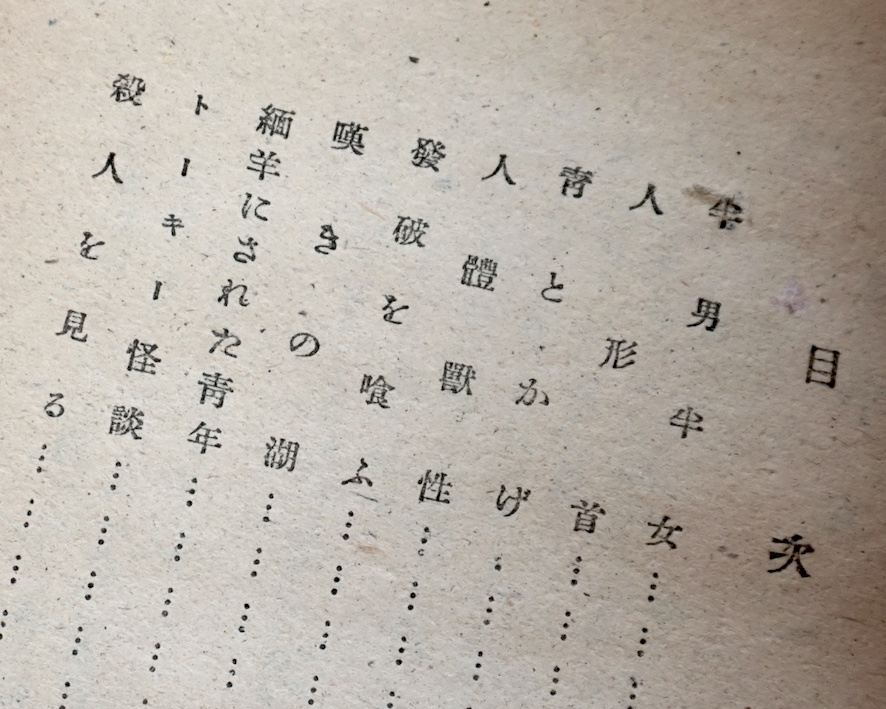 目次
半男半女
人形首
青とかげ
人體獸性
發破を喰ふ
嘆きの湖
緬羊にされた青年
トーキー怪談
殺人を見る